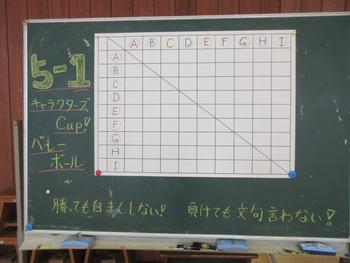 5-1
キャラクターズ
Cup!
バレー
ボール
A B C D E F G H I
A
B
C
D
E
F
G
H
I
勝っても自まんしない! 負けても文句言わない!